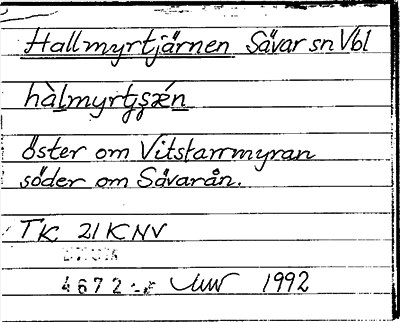 Hallmyrtjärnen Sävar sn Vbl
hàlmyrtʒsǽn
öster om Vitstarrmyran
söder om Sävarån.
TK 21 K NV
4672 1992